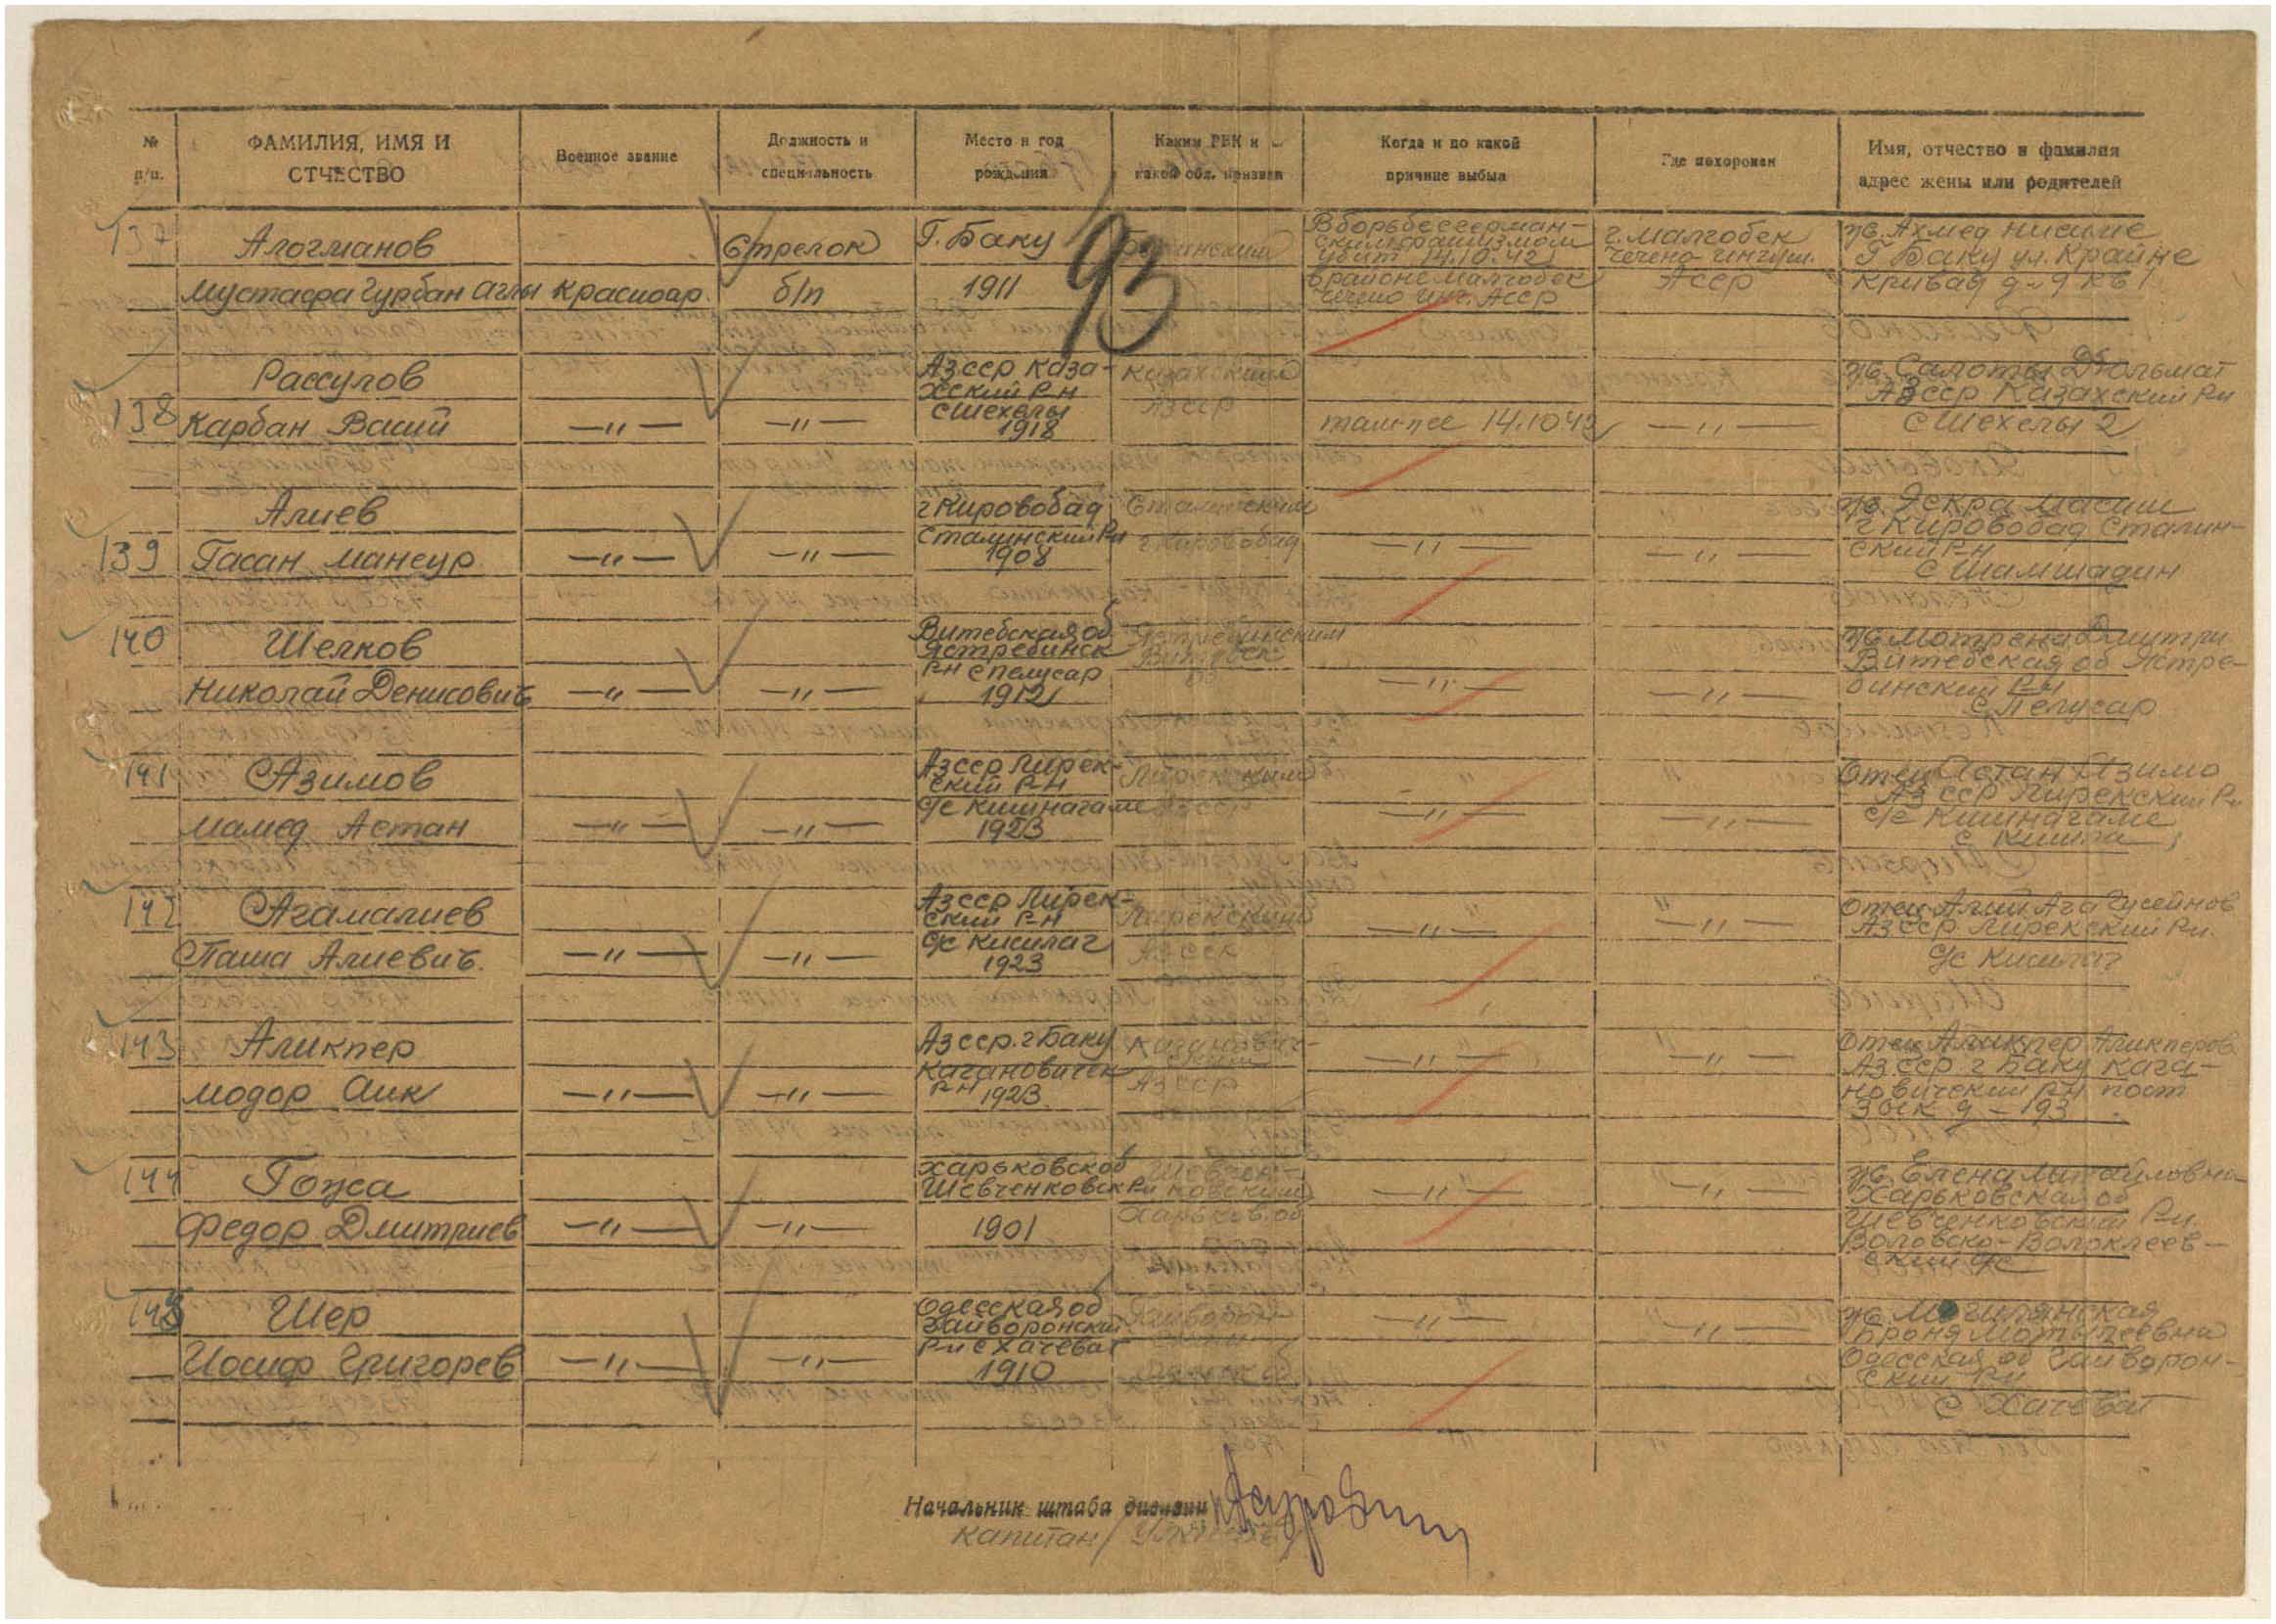 № п/п.
ФАМИЛИЯ, ИМЯ И ОТЧЕСТВО
Военное звание
Должность и специальность
Место и год рождения
Каким РВК и какой обл. призван
Когда и по какой причине выбыл
Где похоронен
Имя, отчество и фамилия адрес жены или родителей
93
137
Алогманов
Мустафа Гурбан Аглы
Красноар.
Стрелок
б/п
Г. Баку
1911
В борьбе с герман-
ским фашизмом
убит 14.10.42
в районе Малгобек
чечено инг. Асср
г. Малгобек
чечено ингуш.
Асср
ж. Ахмед
Г Баку ул. Крайне
Кривая д-9 кв 1
138
Рассулов
Карбан Васий
— " —
— " —
Азсср Каза-
хский Р-н
с Шехелы
1918
Казахским
Азсср
там-же 14.10.42
— " —
ж.
Азсср Казахский Р-н
с Шехелы 2
139
Алиев
Гасан Мансур
— " —
— " —
г Кировобад
Сталинский Р-н
1908
Сталинским
г Кировобад
— " —
— " —
ж. Эскра
г Кировобад Сталин-
ский Р-н
с Шамшадин
140
Шелков
Николай Денисович
— " —
— " —
Витебская об
Ястребинск
Р-н с Пелусар
1912
— " —
— " —
ж. Мотрена Дмитри
Витебская об Ястре-
бинский Р-н
с. Пелусар
141
Азимов
Мамед Астан
— " —
— " —
Азсср Лирек-
ский Р-н
с/с Кишнагаме
1923
Лирекским
Азсср
— " —
— " —
отец Астан Азимо
Азсср Лирекский Р-н
с/с Кишнагаме
с
142
Агамалиев
Паша Алиевич.
— " —
— " —
Азсср Лирек-
ский Р-н
с/с Кисилаг
1923
Лирекским
— " —
— " —
отец Алий Ага Гусейнов
Азсср Лирекский Р-н.
с/с Кисилаг
143
Аликпер
Модор Аик
— " —
— " —
Азсср. г Баку
Кагановичск
Р-н 1923
Каганович-
ским
Азсср
— " —
— " —
отец Аликпер Аликперов
Азсср г Баку Кага-
новический Р-н пост
д-193
144
Гожа
Федор Дмитриев
— " —
— " —
Харьковск об
Шевченковск Р-н
1901
Шевчен-
ковским
Харьков. об
— " —
— " —
ж. Елена Михайловна
Харьковская об
Шевченковский Р-н.
ский с/с
145
Шер
Иосиф Григорев
— " —
— " —
Одесская об
Гайворонский
Р-н с Хачеват
1910
— " —
— " —
ж. Могилянская
Броня
Одесская об Гайворон-
ский Р-н
с Хачеват
Начальник штаба дивизии
капитан